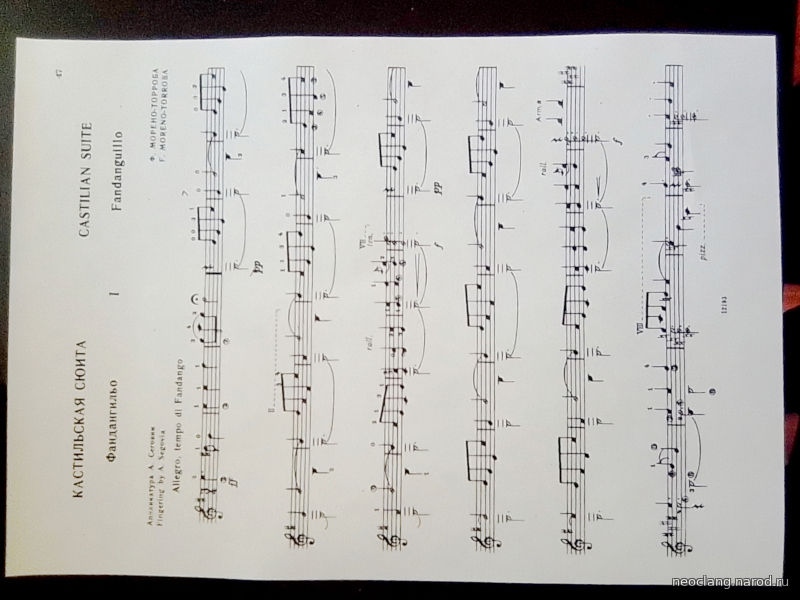 47
КАСТИЛЬСКАЯ СЮИТА
CASTILIAN SUITE
I
Фандангильо
Fandanguillo
Аппликатура А. Сеговии
Fingering by A. Segovia
Ф. МОРЕНО-ТОРРОБА
F. MORENO-TORROBA
Allegro, tempo di Fandango
ff
pp
II
rall.
VII
f
pp
rall.
Arm.
f
VIII
pizz.
12193
neoclang.narod.ru